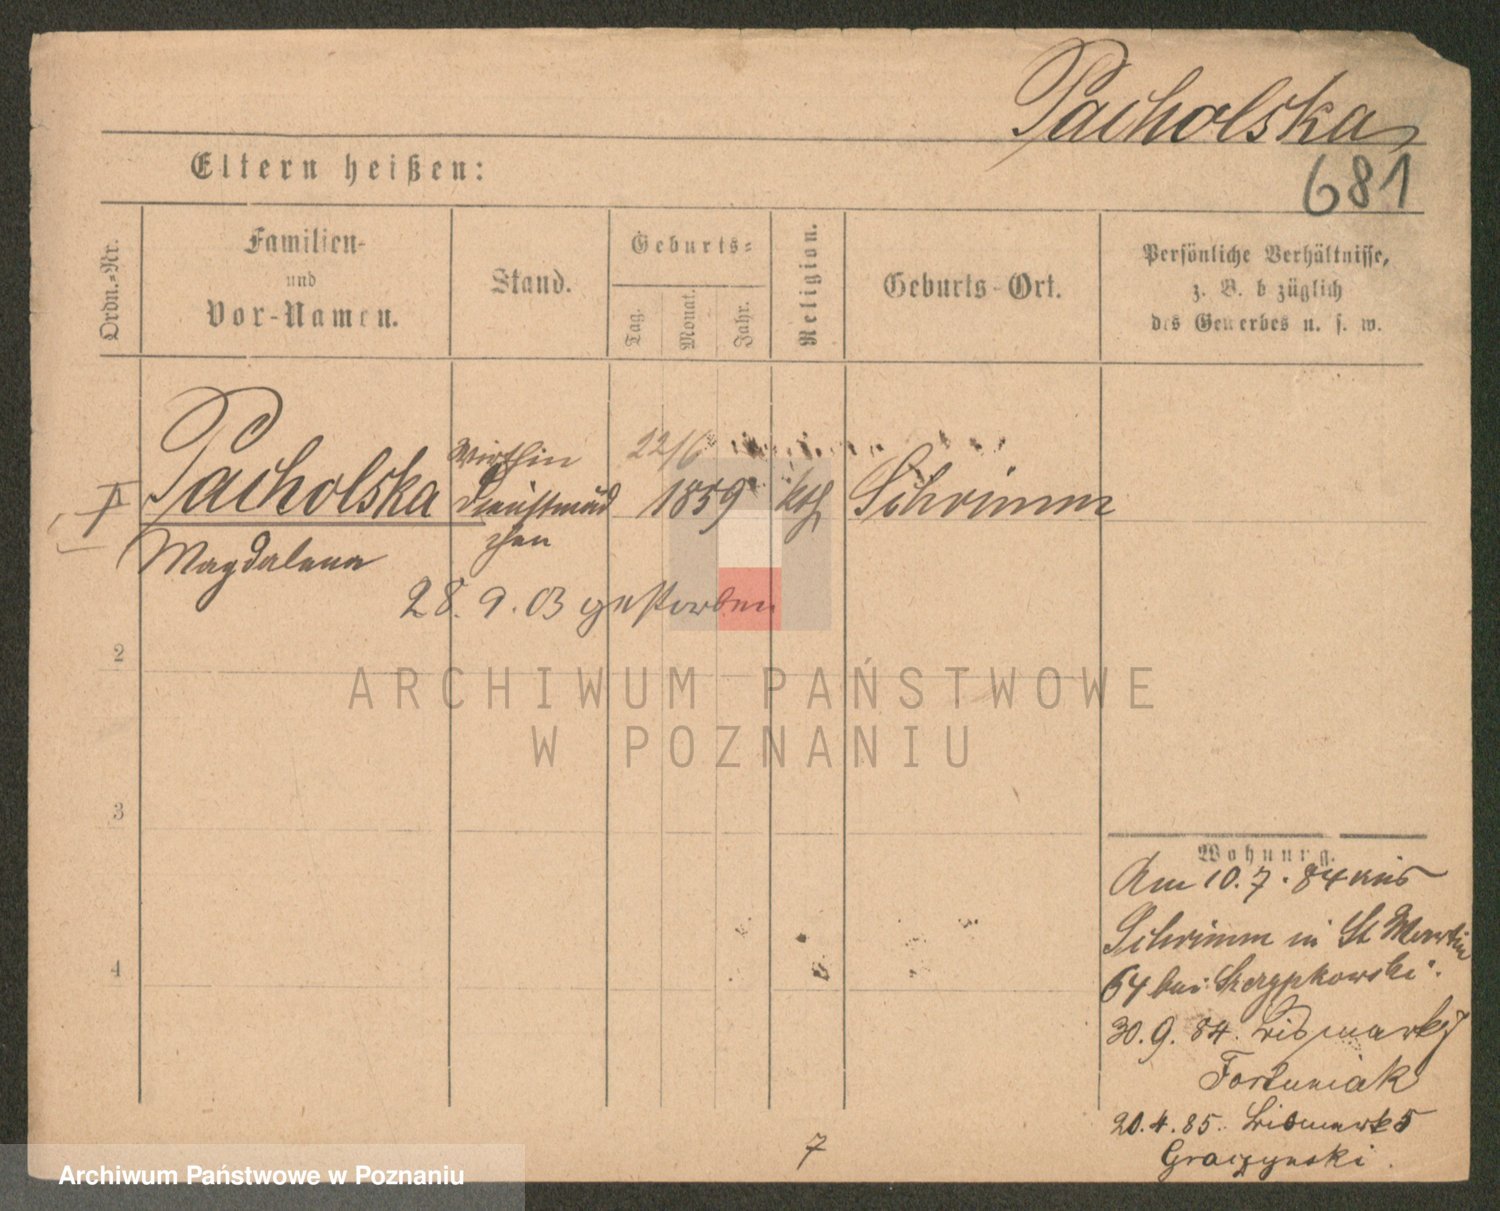 Pacholska
681
Eltern heißen:
Ordn.-Nr.
Familien-
und
Vor-Namen.
Stand.
Geburts-
Tag.
Monat.
Jahr.
Religion.
Geburts-Ort.
Persönliche Verhältnisse,
z. B. b züglich
des Gewerbes u. s. w.
1
Pacholska
Magdalena
Wirthin
Dienstmäd
chen
22/6
1859
kth
Schrimm
28. 9. 03 gestorben
2
ARCHIWUM PAŃSTWOWE
W POZNANIU
3
4
Wohnung.
Am 10. 7. 84 aus
Schrimm in St Martin
64 bei
30. 9. 84. Bismarks 7
Fortuniak
20. 4. 85. Bismark 5
Graczynski.
7
Archiwum Państwowe w Poznaniu